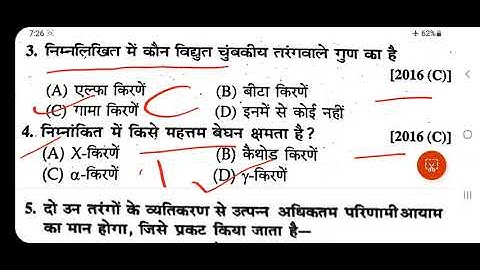 7:26
62%
3. निम्नलिखित में कौन विद्युत चुंबकीय तरंगवाले गुण का है
[2016 (C)]
(A) एल्फा किरणें (B) बीटा किरणें
(C) गामा किरणें (D) इनमें से कोई नहीं
4. निम्नांकित में किसे महत्तम बेधन क्षमता है ? [2016 (C)]
(A) X-किरणें (B) कैथोड किरणें
(C) α-किरणें (D) γ-किरणें
5. दो उन तरंगों के व्यतिकरण से उत्पन्न अधिकतम परिणामी आयाम
का मान होगा, जिसे प्रकट किया जाता है—